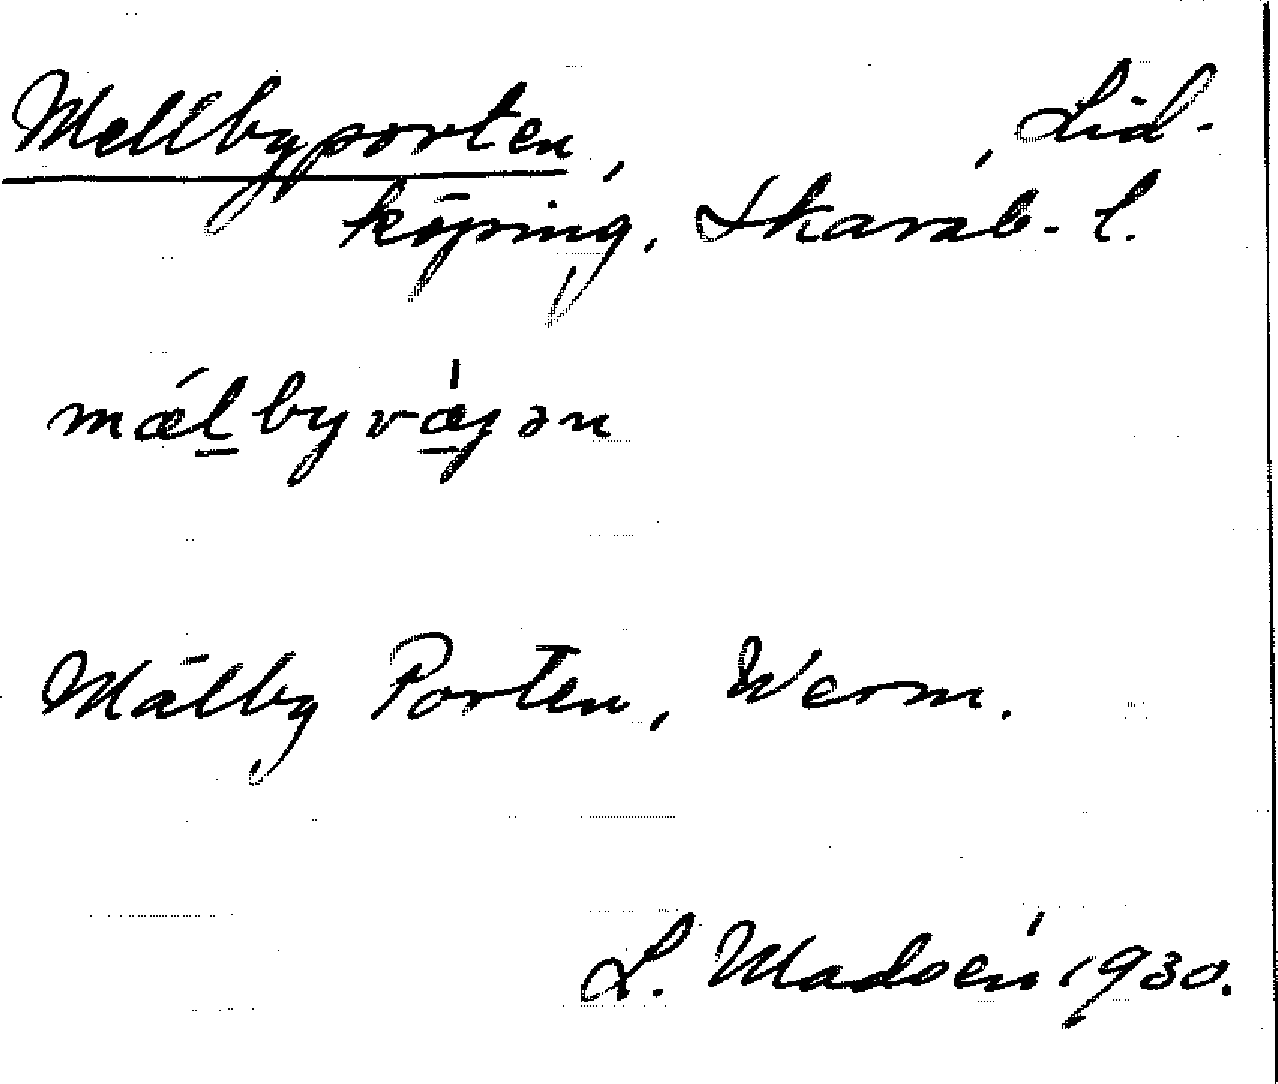 Mellbyporten, , Lid-
köping, Skarab. l.
mǽl̲byvæ̲̍jən
Mälby Porten, Werm.
L. Madsén 1930.